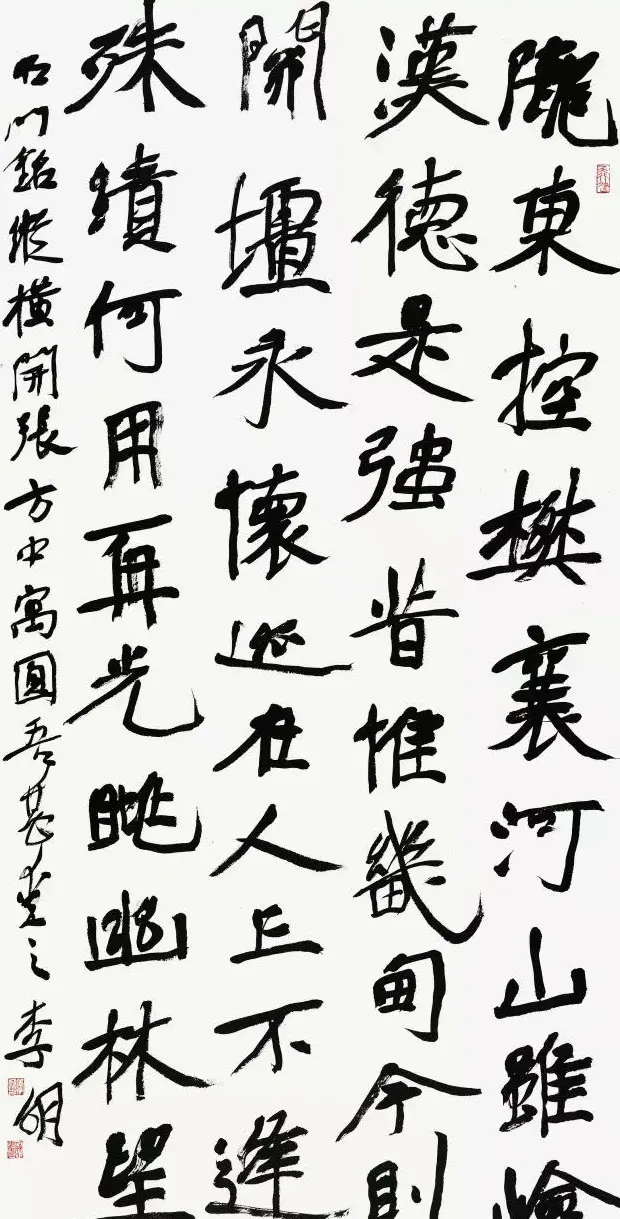 隴東控樊襄河山雖險
漢德是強昔惟畿甸今則
開壃永懷迹在人亡不逢
殊績何用再光眺幽林望
石門銘縱橫開張方中寓圓吾甚愛之李明